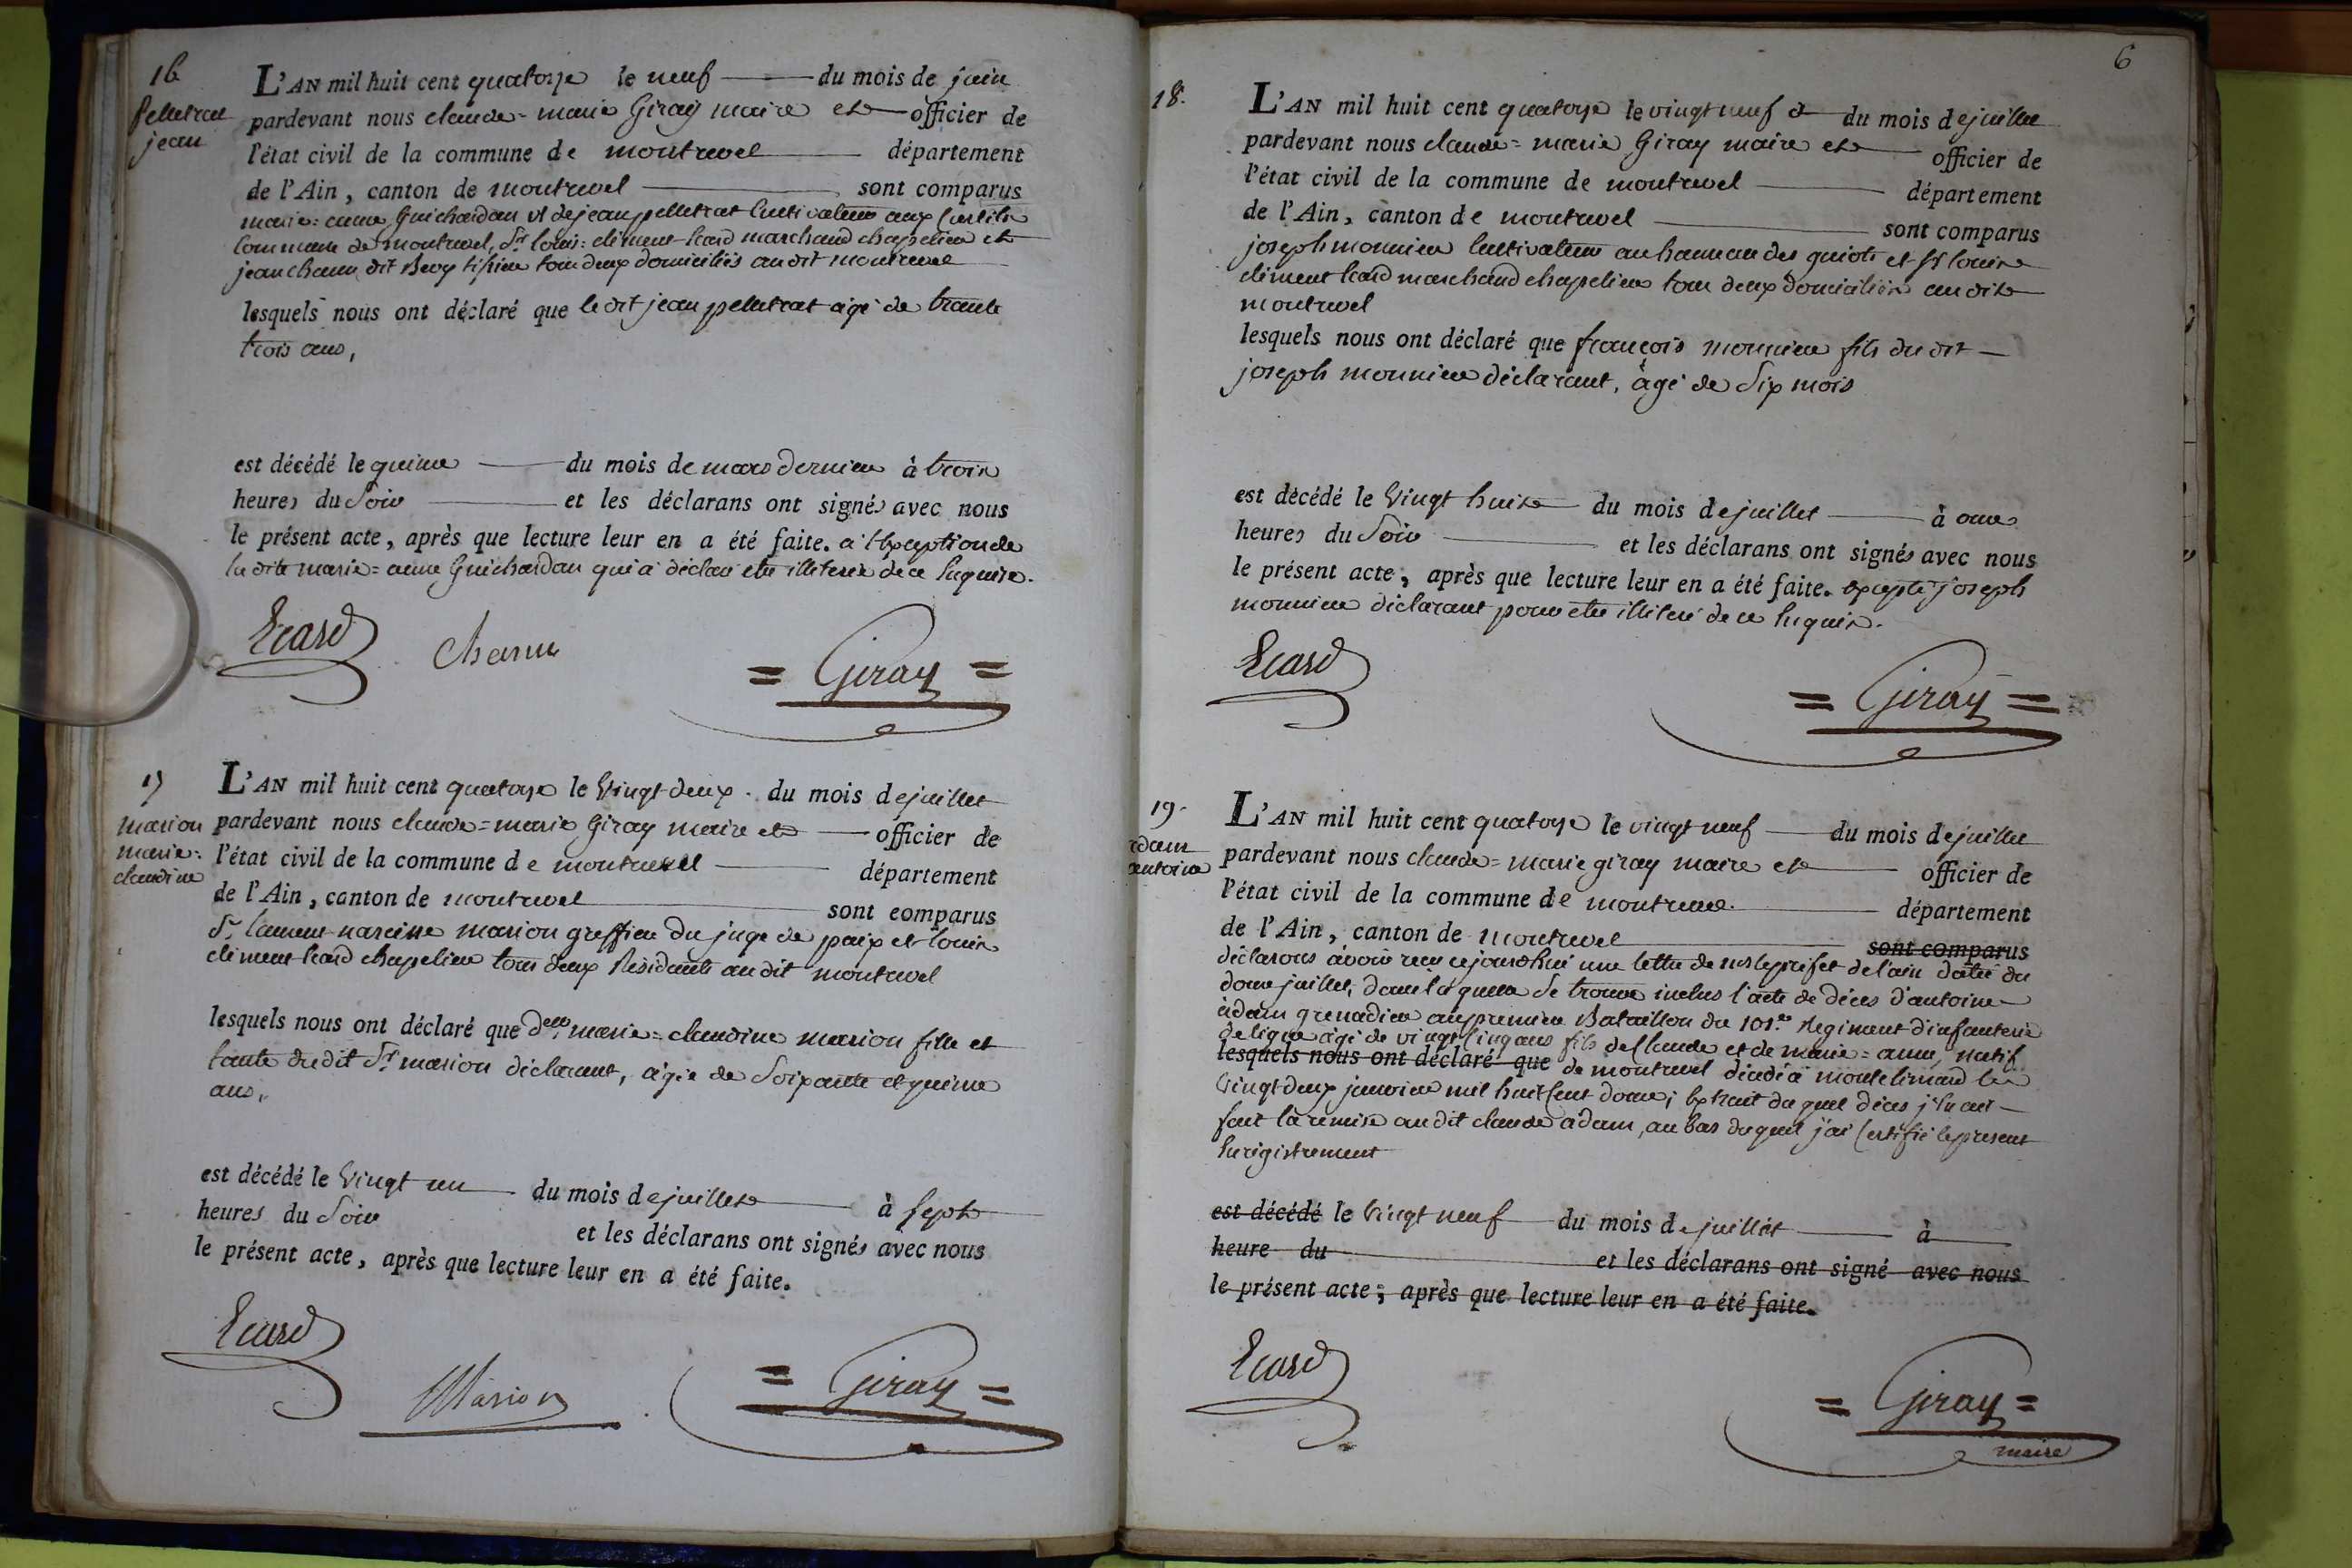 16
pelletrat
jean
L'AN mil huit cent quatorze le neuf du mois de juin
pardevant nous claude-marie Giray maire et officier de
l'état civil de la commune de montrevel département
de l'Ain, canton de montrevel sont comparus
marie-anne Guichardan vf de jean pelletrat Cultivateur aux
Commune de montrevel, Sr louis-clément Ecard marchand chapelier et
jean chanu dit tous deux domiciliés au dit montrevel
lesquels nous ont déclaré que le dit jean pelletrat agé de trante
trois ans,
est décédé le quinze du mois de mars dernier à trois
heures du Soir et les déclarans ont signés avec nous
le présent acte, après que lecture leur en a été faite. a l'Exception de
la dite marie-anne Guichardan qui a déclaré etre illiterée de ce Enquise.
Ecard chanu = Giray =
17
marion
marie-
claudine
L'AN mil huit cent quatorze le Vingt deux du mois de juillet
pardevant nous claude-marie Giray maire et officier de
l'état civil de la commune de montrevel département
de l'Ain, canton de montrevel sont comparus
Sr laurent narcisse marion greffier du juge de paix et louis
clément Ecard chapelier tous deux Résidants au dit montrevel
lesquels nous ont déclaré que delle marie-claudine marion fille et
tante du dit Sr marion déclarant, agée de Soixante et quinze
ans,
est décédé le Vingt un du mois de juillet à sept
heures du Soir et les déclarans ont signés avec nous
le présent acte, après que lecture leur en a été faite.
Ecard
Marion = Giray =
6
18.
L'AN mil huit cent quatorze le vingt neuf du mois de juillet
pardevant nous claude-marie Giray maire et officier de
l'état civil de la commune de montrevel département
de l'Ain, canton de montrevel sont comparus
joseph monnier Cultivateur au hameau des guiots et Sr louis
clément Ecard marchand chapelier tous deux domiciliés au dit
montrevel
lesquels nous ont déclaré que françois monnier fils du dit
joseph monnier déclarant, agé de Six mois
est décédé le Vingt huit du mois de juillet à onze
heures du Soir et les déclarans ont signés avec nous
le présent acte, après que lecture leur en a été faite. Excepté joseph
monnier déclarant pour etre illiteré de ce Enquis.
Ecard
= Giray =
19.
adam
antoine
L'AN mil huit cent quatorze le vingt neuf du mois de juillet
pardevant nous claude-marie giray maire et officier de
l'état civil de la commune de montrevel département
de l'Ain, canton de montrevel sont comparus
déclarons avoir reçu cejourdhui une lettre de mr le préfet de l'ain datée du
douze juillet, dans laquelle Se trouve inclus l'acte de décès d'antoine
adam grenadier au premier Bataillon du 101.e Régiment d'infanterie
de ligne agé de vingt Cinq ans fils de Claude et de marie-anne, natif
lesquels nous ont déclaré que de montrevel décédé à montelimard le
Vingt deux janvier mil huit Cent douze; Extrait du quel décès
fait la remise au dit claude adam, au bas duquel j'ai Certifié le présent
Enrégistrement
est décédé le Vingt neuf du mois de juillet à
heure du et les déclarans ont signé avec nous
le présent acte; après que lecture leur en a été faite.
Ecard
= Giray =
maire